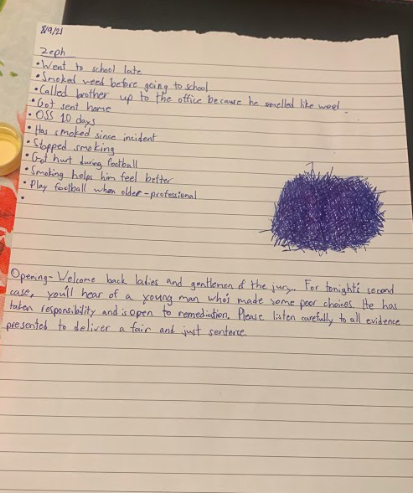 8/9/21
Zeph
• Went to school late
• Smoked weed before going to school
• Called brother up to the office because he smelled like weed
• Got sent home
• OSS 10 days
• Has smoked since incident
• Stopped smoking
• Got hurt during football
• Smoking helps him feel better
• Play football when older - professional
•
Opening - Welcome back ladies and gentlemen of the jury. For tonight's second
case, you'll hear of a young man who's made some poor choices. He has
taken responsibility and is open to remediation. Please listen carefully to all evidence
presented to deliver a fair and just sentence.